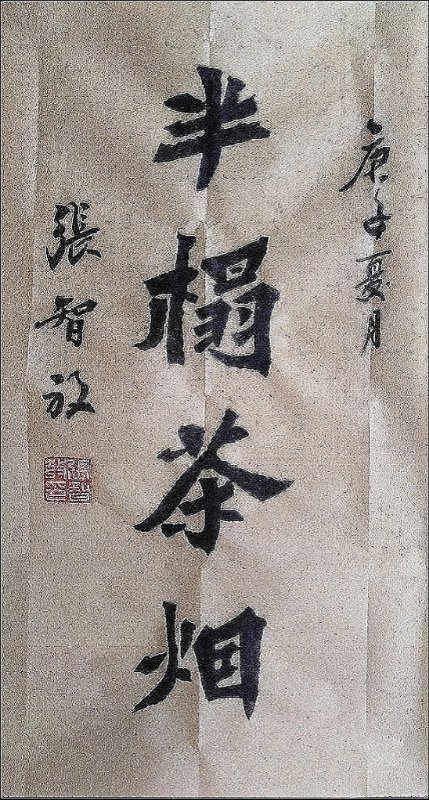 庚子夏月
半榻茶烟
張智放